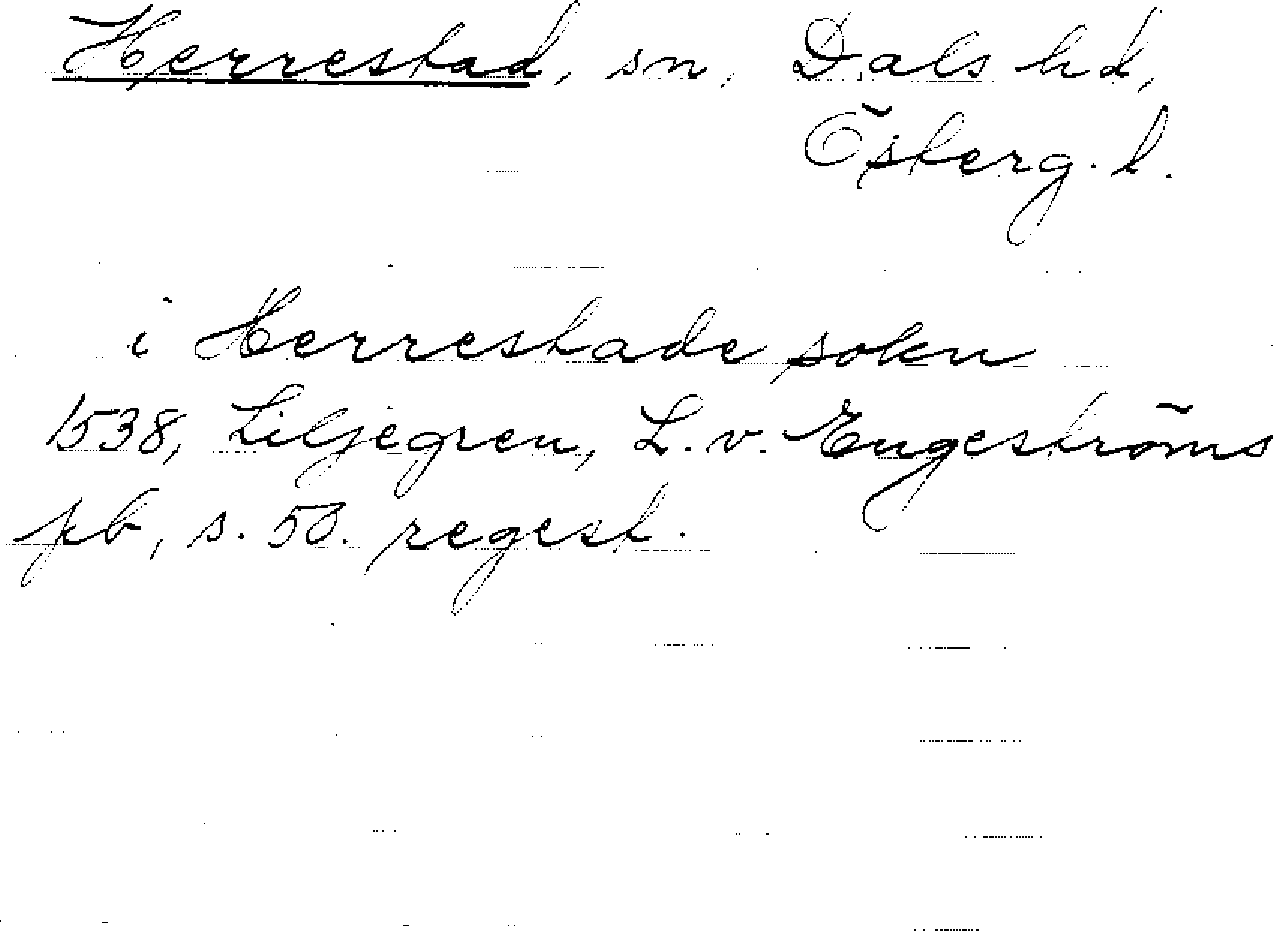 Herrestad, sn, Dals hd,
Österg. l.
i Herrestade sokn
1538, Liljegren, L. v. Engeströms
pb, s. 50. regest.